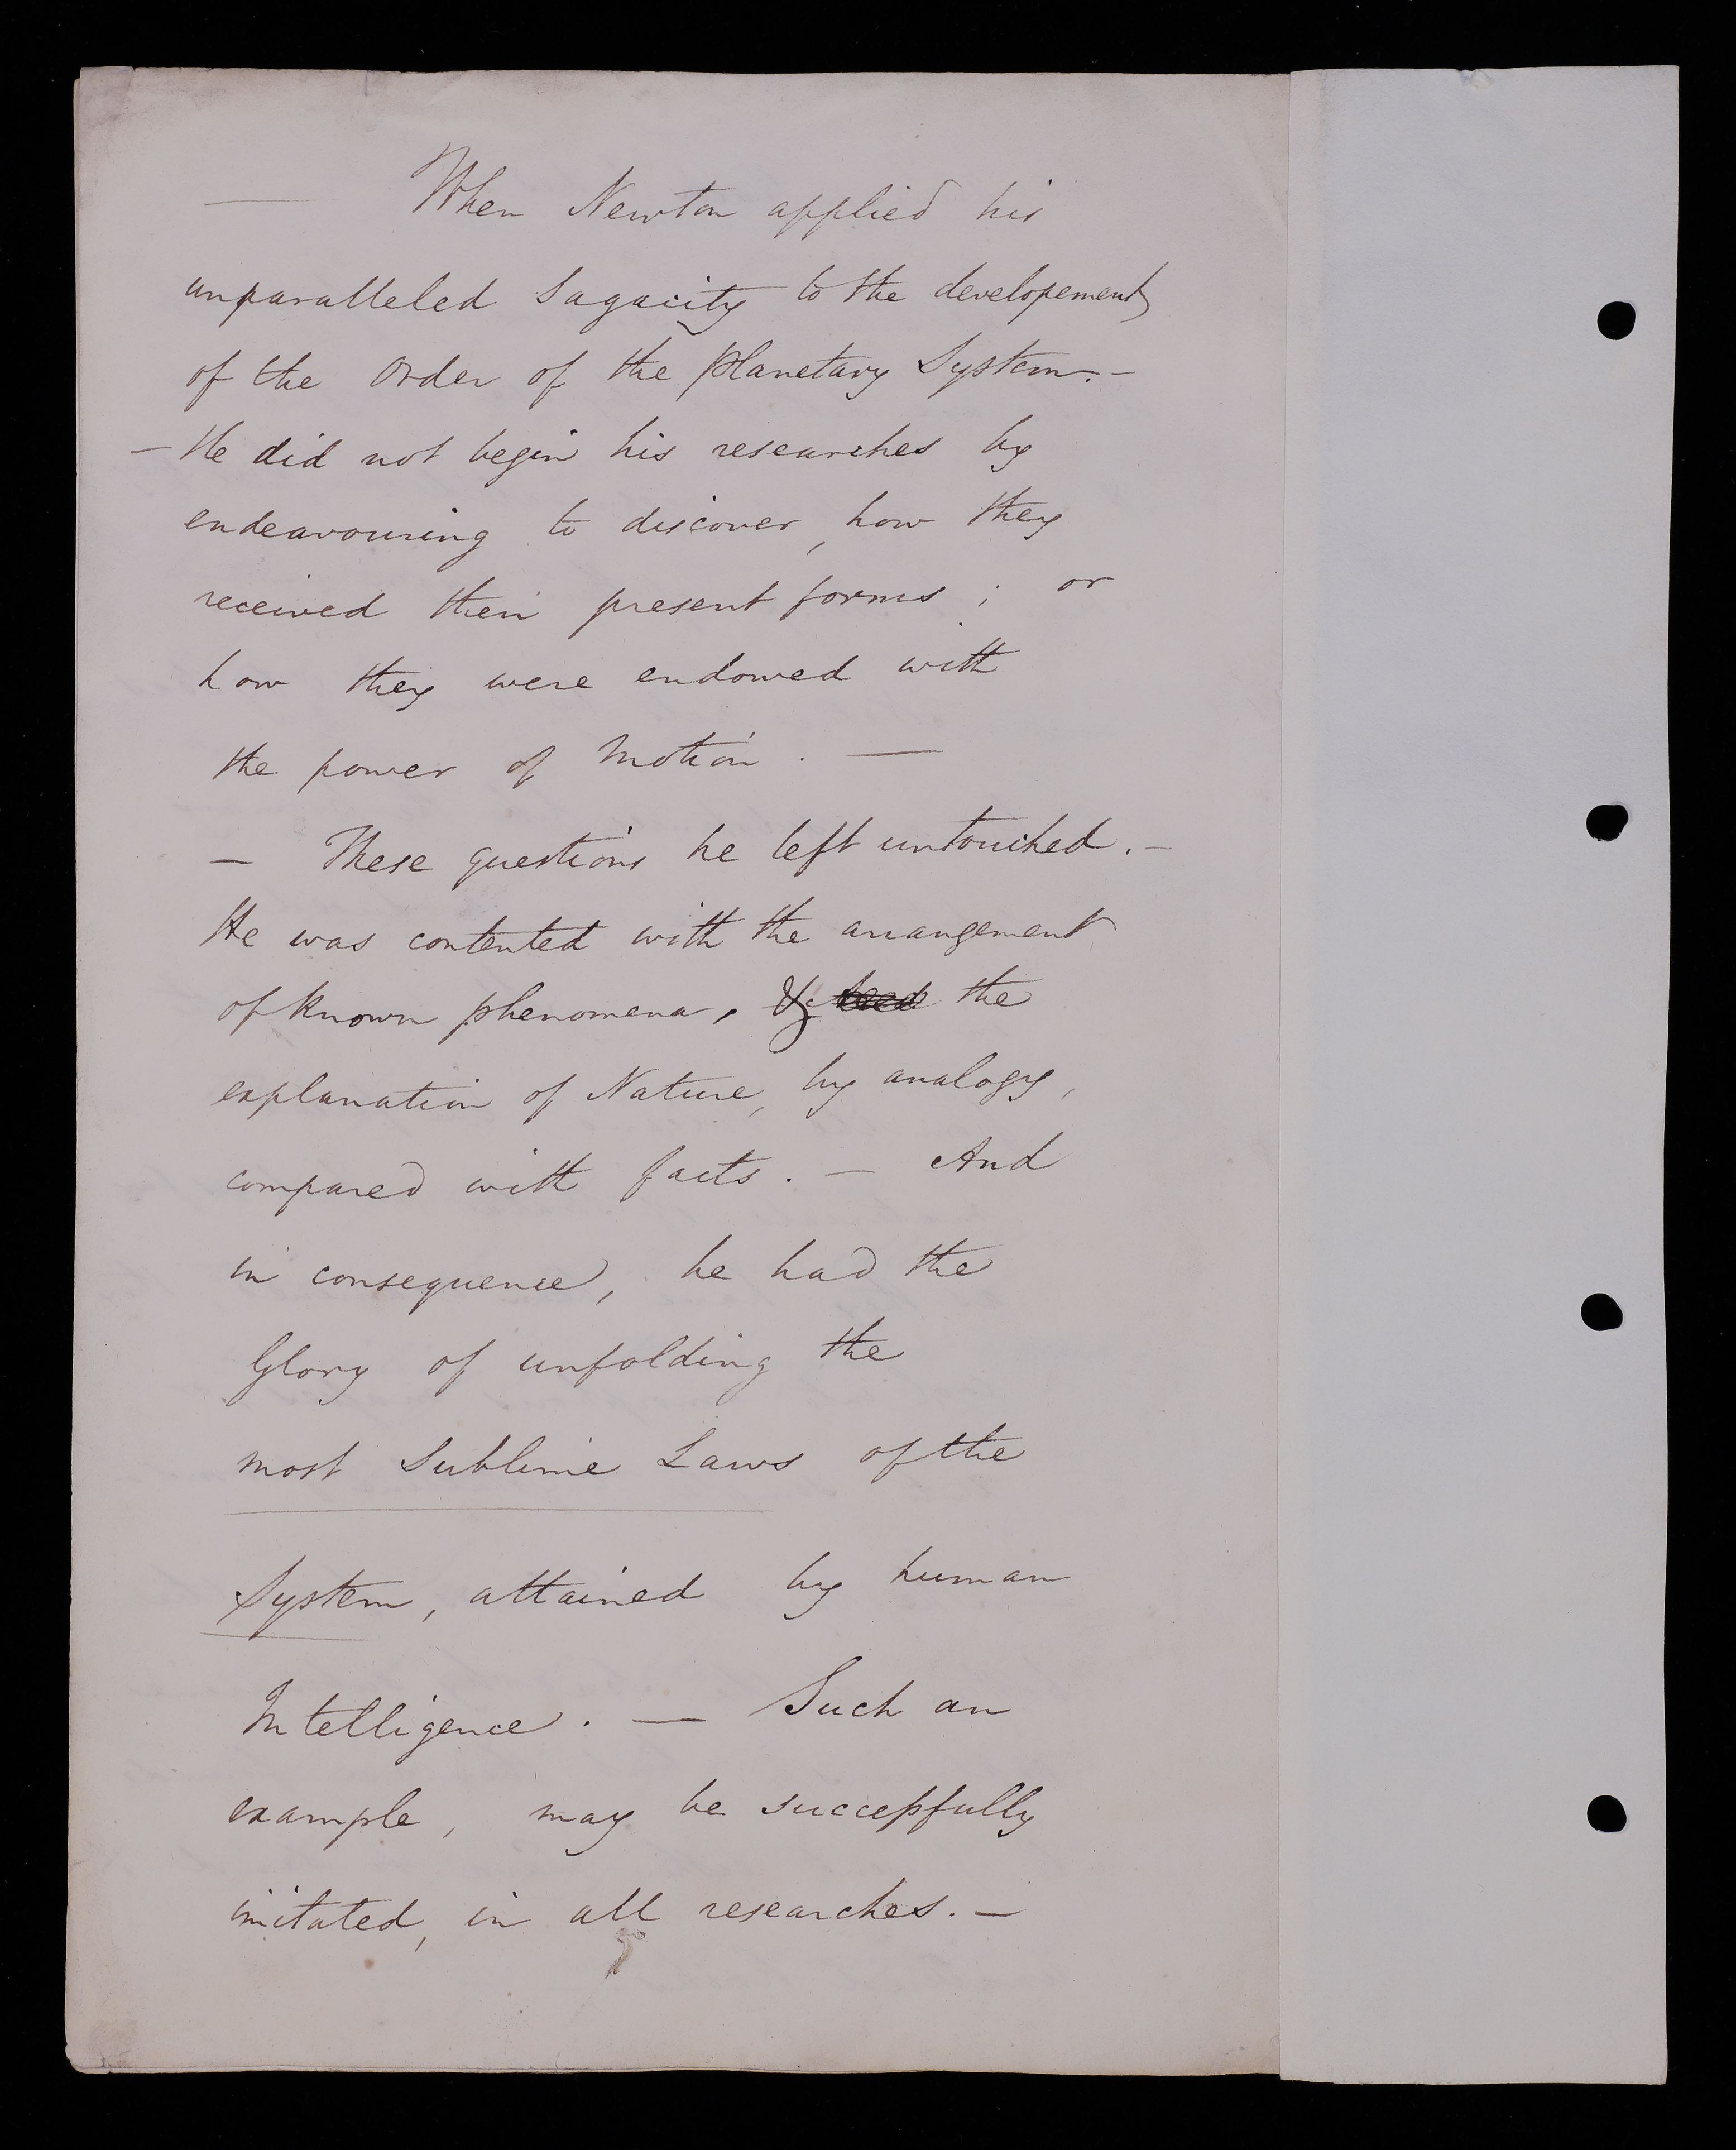 — When Newton applied his
unparalleled Sagacity to the developement
of the Order of the Planetary System. —
— He did not begin his researches by
endeavouring to discover, how they
received their present forms ; or
how they were endowed with
the power of Motion . —
— These questions he left untouched. —
He was contented with the arrangement
of known phenomena, & the
explanation of Nature, by analogy,
compared with facts . — And
in consequence, he had the
Glory of unfolding the
most Sublime Laws of the
System, attained by human
Intelligence . — Such an
example, may be successfully
imitated, in all researches. —